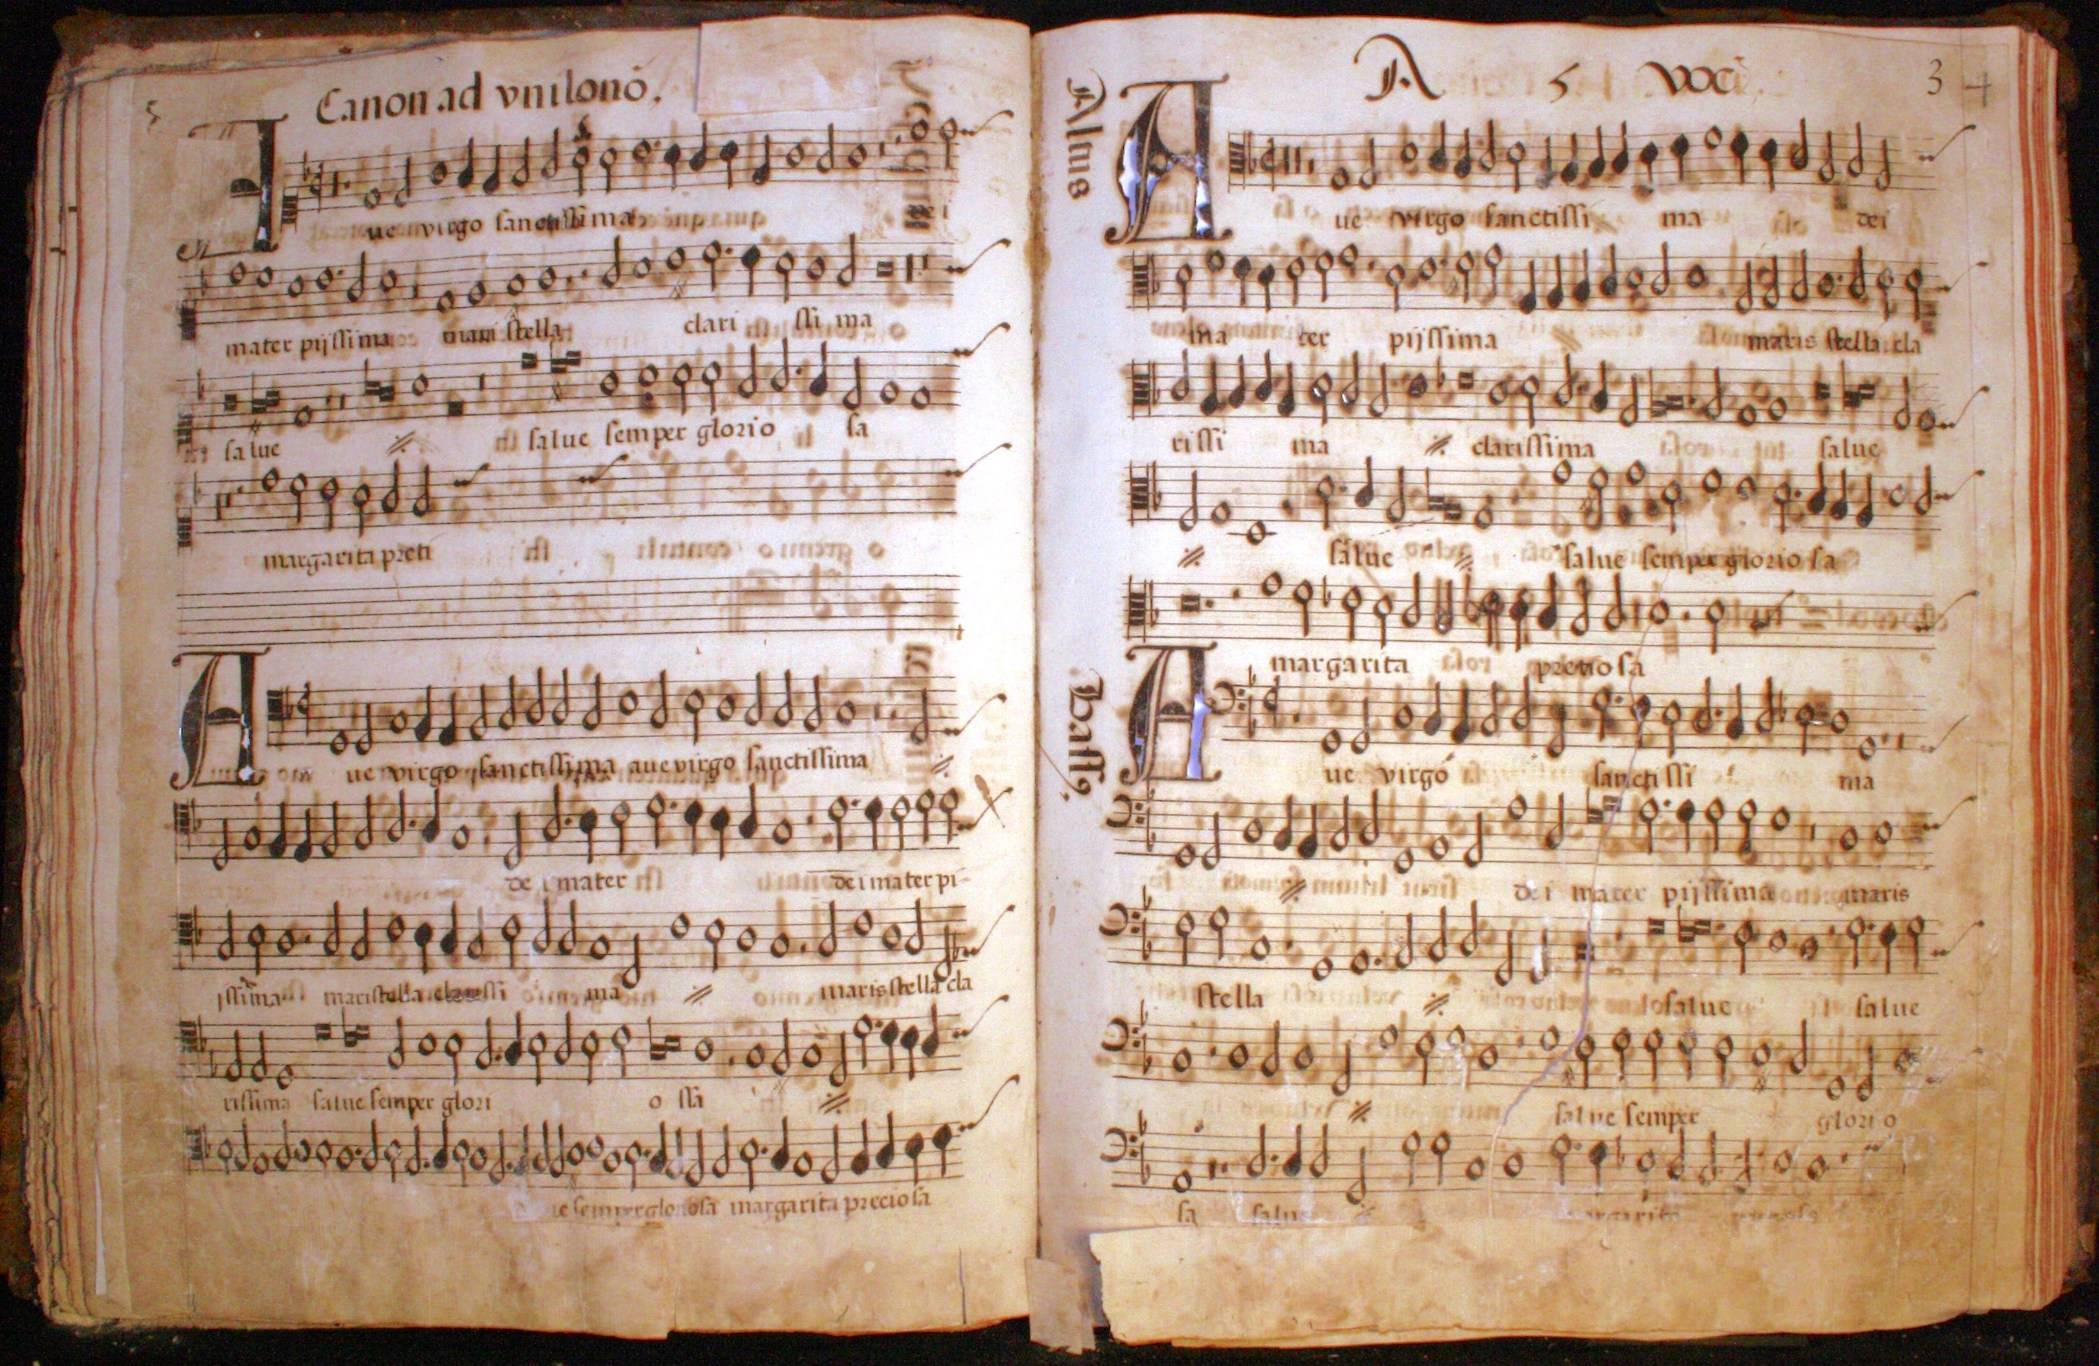 5
Canon ad vnisonō.
Aue virgo sanctissima dei
mater pijssima maristella clarissi ma
salue salue semper glorio sa
margarita preti
Aue virgo sanctissima aue virgo sanctissima
dei mater dei mater pi
jssima maristella clarissi ma maris stella cla
rissima salue semper glori o sa
ue semper gloriosa margarita preciosa
A 5 voci
3 4
Altus
Aue virgo sanctissi ma dei
ma ter pijssima maris stella cla
rissi ma clarissima salue
salue salue semper glorio sa
margarita pretiosa
Bassus
Aue virgo sanctissi ma
dei mater pijssima maris
stella salue salue
salue semper glorio
sa salue margarita